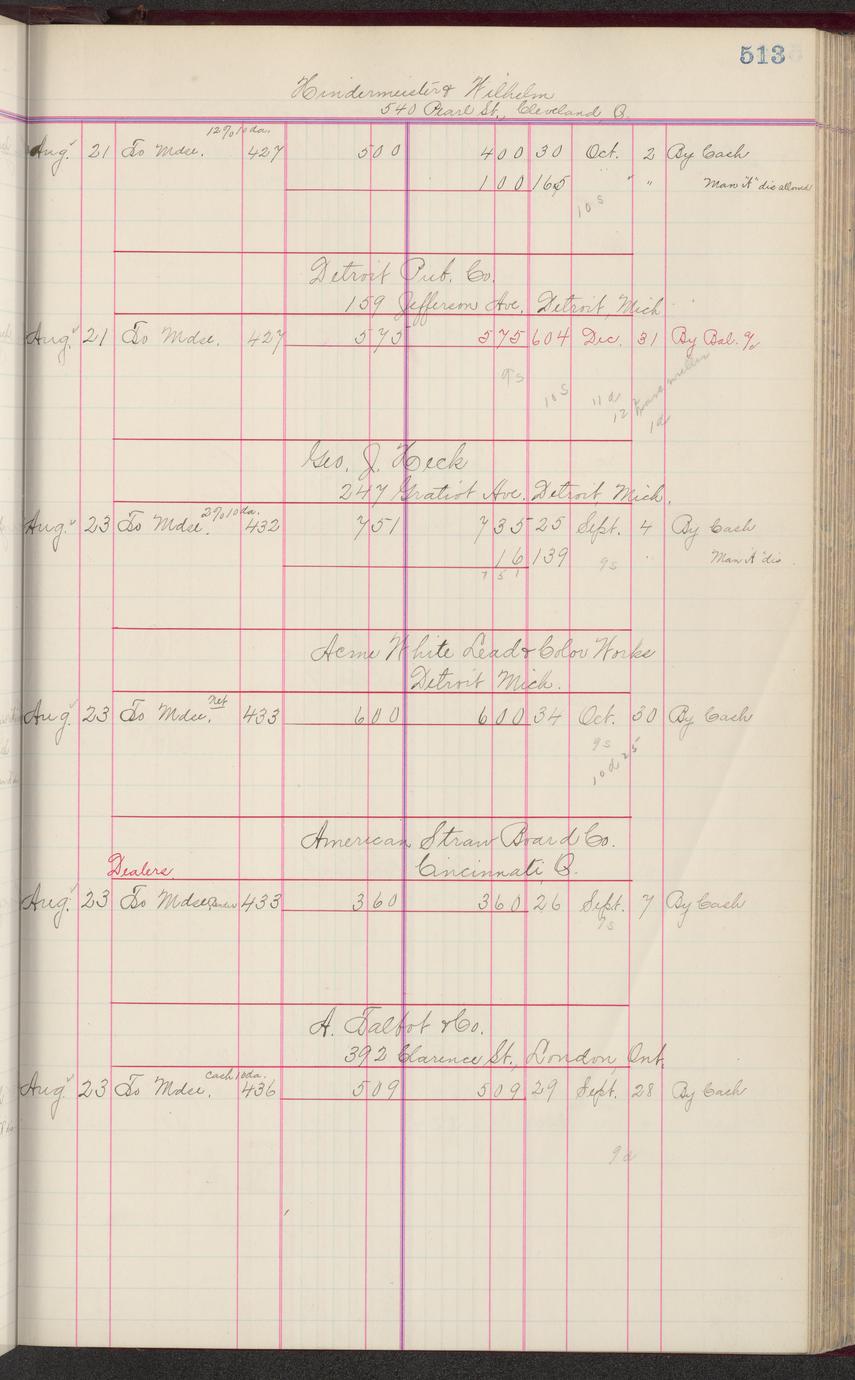 513
Hindermeister & Wilhelm
540 Pearl St., Cleveland, O.
12% 10 da.
Aug. 21 To Mdse. 427 500 400 30 Oct. 2 By Cash
100 165 " " Man "A" dis allowed
10 s
Detroit Pub. Co.
159 Jefferson Ave. Detroit, Mich
Aug. 21 To Mdse. 427 575 575 604 Dec. 31 By Bal. %
9 s 10 s 11 d 12
1 d
Geo. J. Heck
247 Gratiot Ave. Detroit Mich.
2% 10 da.
Aug. 23 To Mdse. 432 751 735 25 Sept. 4 By Cash
16 139 " Man "A" dis
7 5 1 9 s
Acme White Lead & Color Works
Detroit Mich.
Aug. 23 To Mdse. Net 433 600 600 34 Oct. 30 By Cash
9 s
10 d 25
American Straw Board Co.
Dealers Cincinnati O.
Aug. 23 To Mdse. 433 360 360 26 Sept. 7 By Cash
9 s
A. Talbot & Co.
392 Clarence St., London, Ont.
cash 10 da.
Aug. 23 To Mdse. 436 509 509 29 Sept. 28 By Cash
9 d